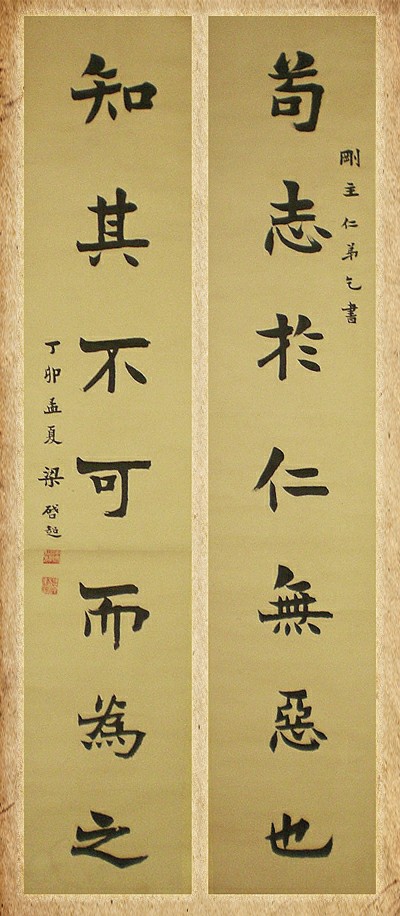 剛主仁弟乞書
苟志於仁無惡也
知其不可而為之
丁卯孟夏 梁啓超